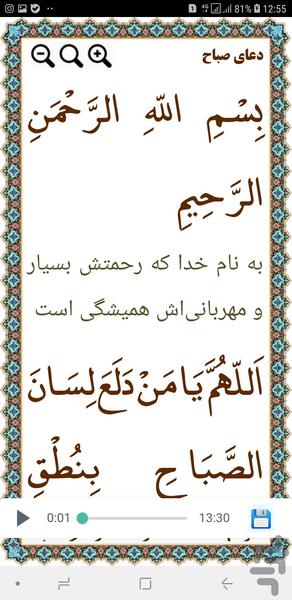 81% 12:55
دعای صباح
بِسْمِ اللّهِ الرَّحْمَنِ
الرَّحِیمِ
به نام خدا که رحمتش بسیار
و مهربانی‌اش همیشگی است
اَللّهُمَّ یَا مَنْ دَلَعَ لِسَانَ
الصَّبَاحِ بِنُطْقِ
0:01 13:30